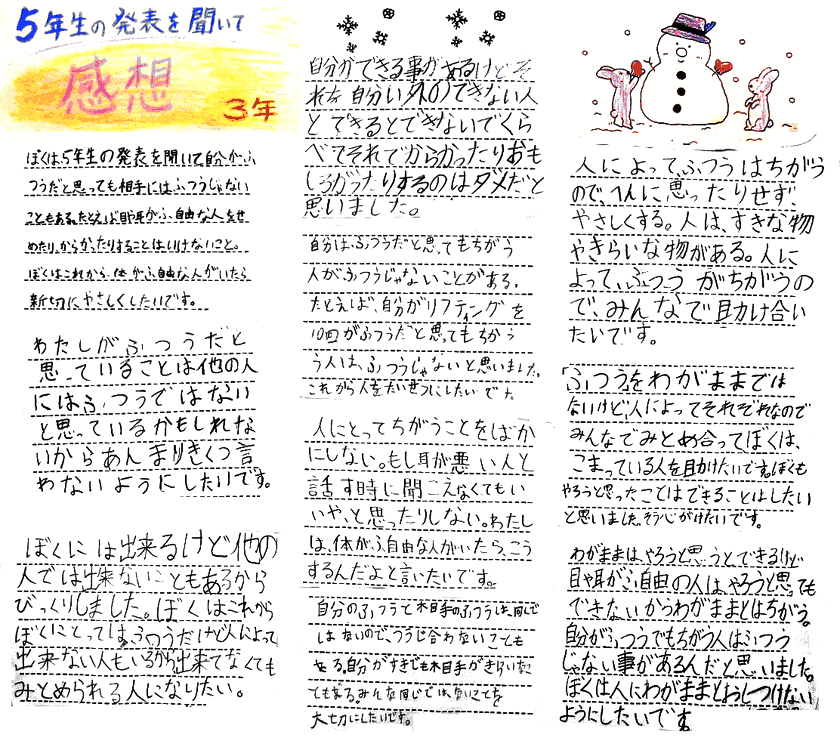 5年生の発表を聞いて
感想
3年
ぼくは5年生の発表を聞いて自分がふ
つうだと思っても相手にはふつうじゃない
こともある。たとえば目や耳がふ自由な人をせ
めたり、からかったりすることはいけないこと。
ぼくはこれから、体がふ自由な人がいたら
新切にやさしくしたいです。
わたしがふつうだと
思っていることは他の人
にはふつうではない
と思っているかもしれな
いからあんまりきくつ言
わないようにしたいです。
ぼくには出来るけど他の
人では出来ないこともあるから
びっくりしました。ぼくはこれから
ぼくにとっては、ふつうだけど人によって
出来ない人もいるから出来てなくても
みとめられる人になりたい。
自分ができる事があるけどそ
れを自分い外のできない人
とできるとできないでくら
べてそれでからかったりおも
しろがったりするのはダメだと
思いました。
自分は、ふつうだと思ってもちがう
人がふつうじゃないことがある。
たとえば、自分がリフティングを
10回がふつうだと思ってもちがう
う人は、ふつうじゃないと思いました。
これから人をたいせつにしたいです。
人にとってちがうことをばか
にしない。もし耳が悪い人と
話す時に聞こえなくてもい
いや、と思ったりしない。わたし
は、体がふ自由な人がいたら、こう
するんだよと言いたいです。
自分のふつうと相手のふつうは、同じで
はないので、つうじ合わないことも
ある。自分がすきでも相手がきらいなこ
ともある。みんな同じではないことを
大切にしたいです。
人によって、ふつうはちがう
ので、へんに思ったりせず、
やさしくする。人は、すきな物
やきらいな物がある。人に
よって、ふつうがちがうの
で、みんなで助け合い
たいです。
ふつうをわがままでは
ないけど、人によってそれぞれなので
みんなでみとめ合ってぼくは、
こまっている人を助けたいです。ぼくも
やろうと思ったことはできることはしたい
と思いました。そう心がけたいです。
わがままは、やろうと思うとできるけど
目や耳がふ自由の人は、やろうと思っても
できないからわがままとはちがう。
自分がふつうでもちがう人はふつう
じゃない事があるんだと思いました。
ぼくは人にわがままとおしつけない
ようにしたいです。